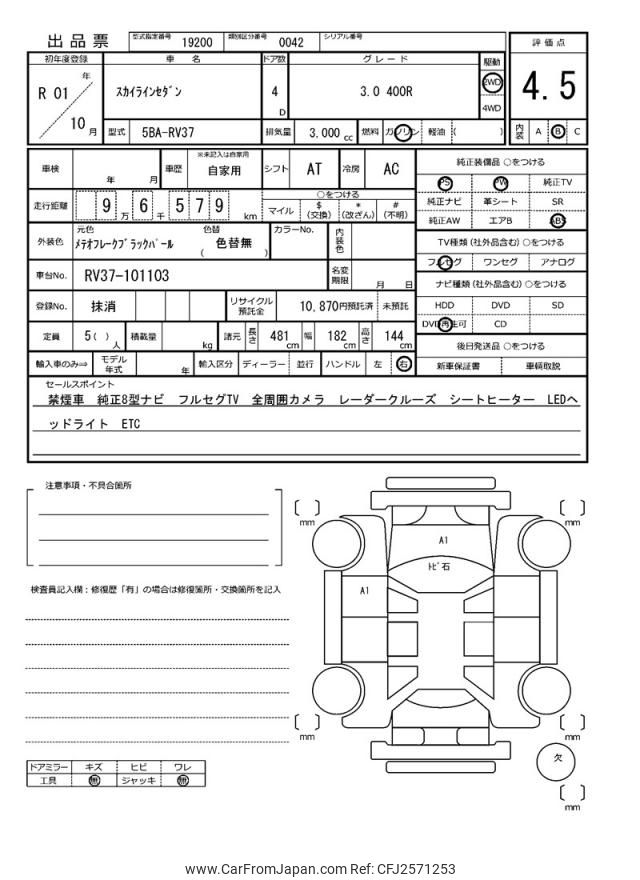 出品票 型式指定番号 19200 類別区分番号 0042 シリアル番号
初年度登録 車名 ドア数 グレード 駆動 評価点
R 01 年 10 月 スカイラインセダン 4 D 3.0 400R 2WD 4WD 4.5
型式 5BA-RV37 排気量 3,000 cc 燃料 ガソリン 軽油 ( ) 内装 A B C
車検 年 月 車歴 ※未記入は自家用 自家用 シフト AT 冷房 AC 純正装備品 ○をつける
PS PW 純正TV
走行距離 9 万 6 千 5 7 9 km ○をつける 純正ナビ 革シート SR
マイル $ (交換) * (改ざん) # (不明) 純正AW エアB ABS
外装色 元色 メテオフレークブラックパール 色替 ( 色替無 ) カラーNo. 内装色 TV種類 (社外品含む) ○をつける
フルセグ ワンセグ アナログ
車台No. RV37-101103 名変期限 月 日 ナビ種類 (社外品含む) ○をつける
登録No. 抹消 リサイクル預託金 10,870円預託済 未預託 HDD DVD SD
DVD再生可 CD
定員 5 ( ) 人 積載量 kg 諸元 長さ 481 cm 幅 182 cm 高さ 144 cm 後日発送品 ○をつける
輸入車のみ⇒ モデル年式 年 輸入区分 ディーラー 並行 ハンドル 左 右 新車保証書 車輌取説
セールスポイント
禁煙車 純正8型ナビ フルセグTV 全周囲カメラ レーダークルーズ シートヒーター LEDヘ
ッドライト ETC
注意事項・不具合箇所
mm mm
A1
トビ石
A1
検査員記入欄：修復歴「有」の場合は修復箇所・交換箇所を記入
mm mm
欠
mm
ドアミラー キズ ヒビ ワレ
工具 無 ジャッキ 無
www.CarFromJapan.com Ref: CFJ2571253